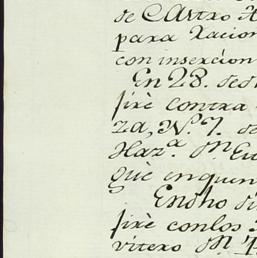 de Castro H
para Racion
con insercion
En 28. de
firè contra
za, N. 7. de
Haz.ª Dn. Eu
què en quen
En dho di
firè con los
vitero Dn.